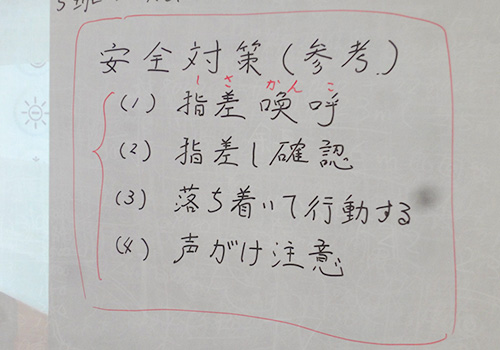 安全対策(参考)
しさ かんこ
(1) 指差喚呼
(2) 指差し確認
(3) 落ち着いて行動する
(4) 声がけ注意